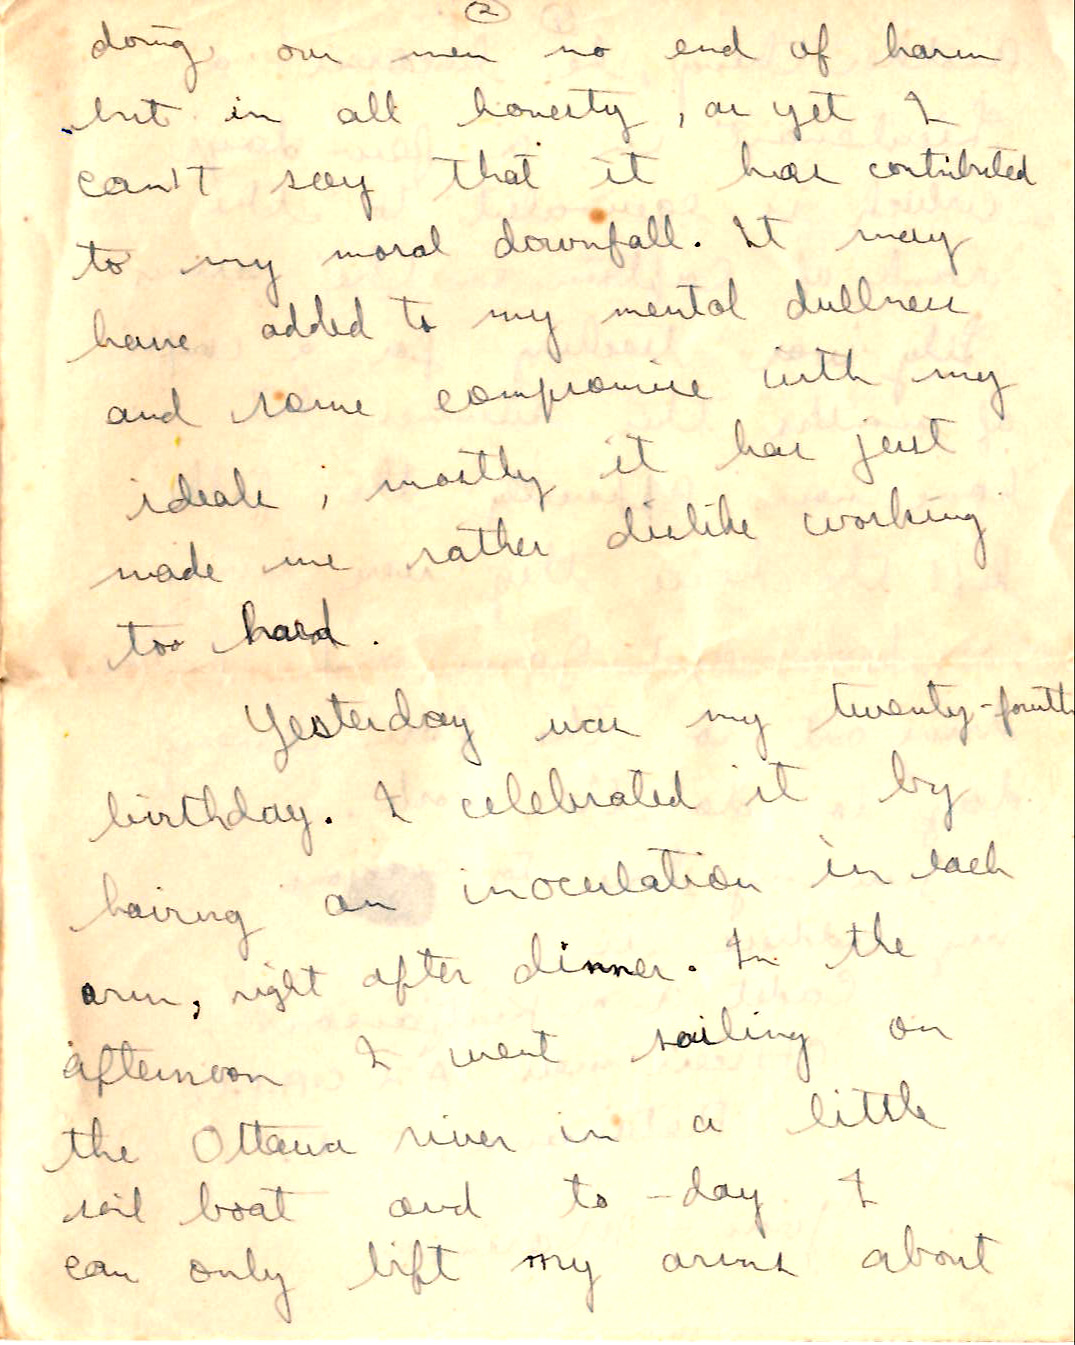 2
doing our men no end of harm
but in all honesty, as yet I
can't say that it has contributed
to my moral downfall. It may
have added to my mental dullness
and some compromise with my
ideals, mostly it has just
made me rather dislike working
too hard.
Yesterday was my twenty-fourth
birthday. I celebrated it by
having an inoculation in each
arm, right after dinner. In the
afternoon I went sailing on
the Ottawa river in a little
sail boat and to-day I
can only lift my arms about